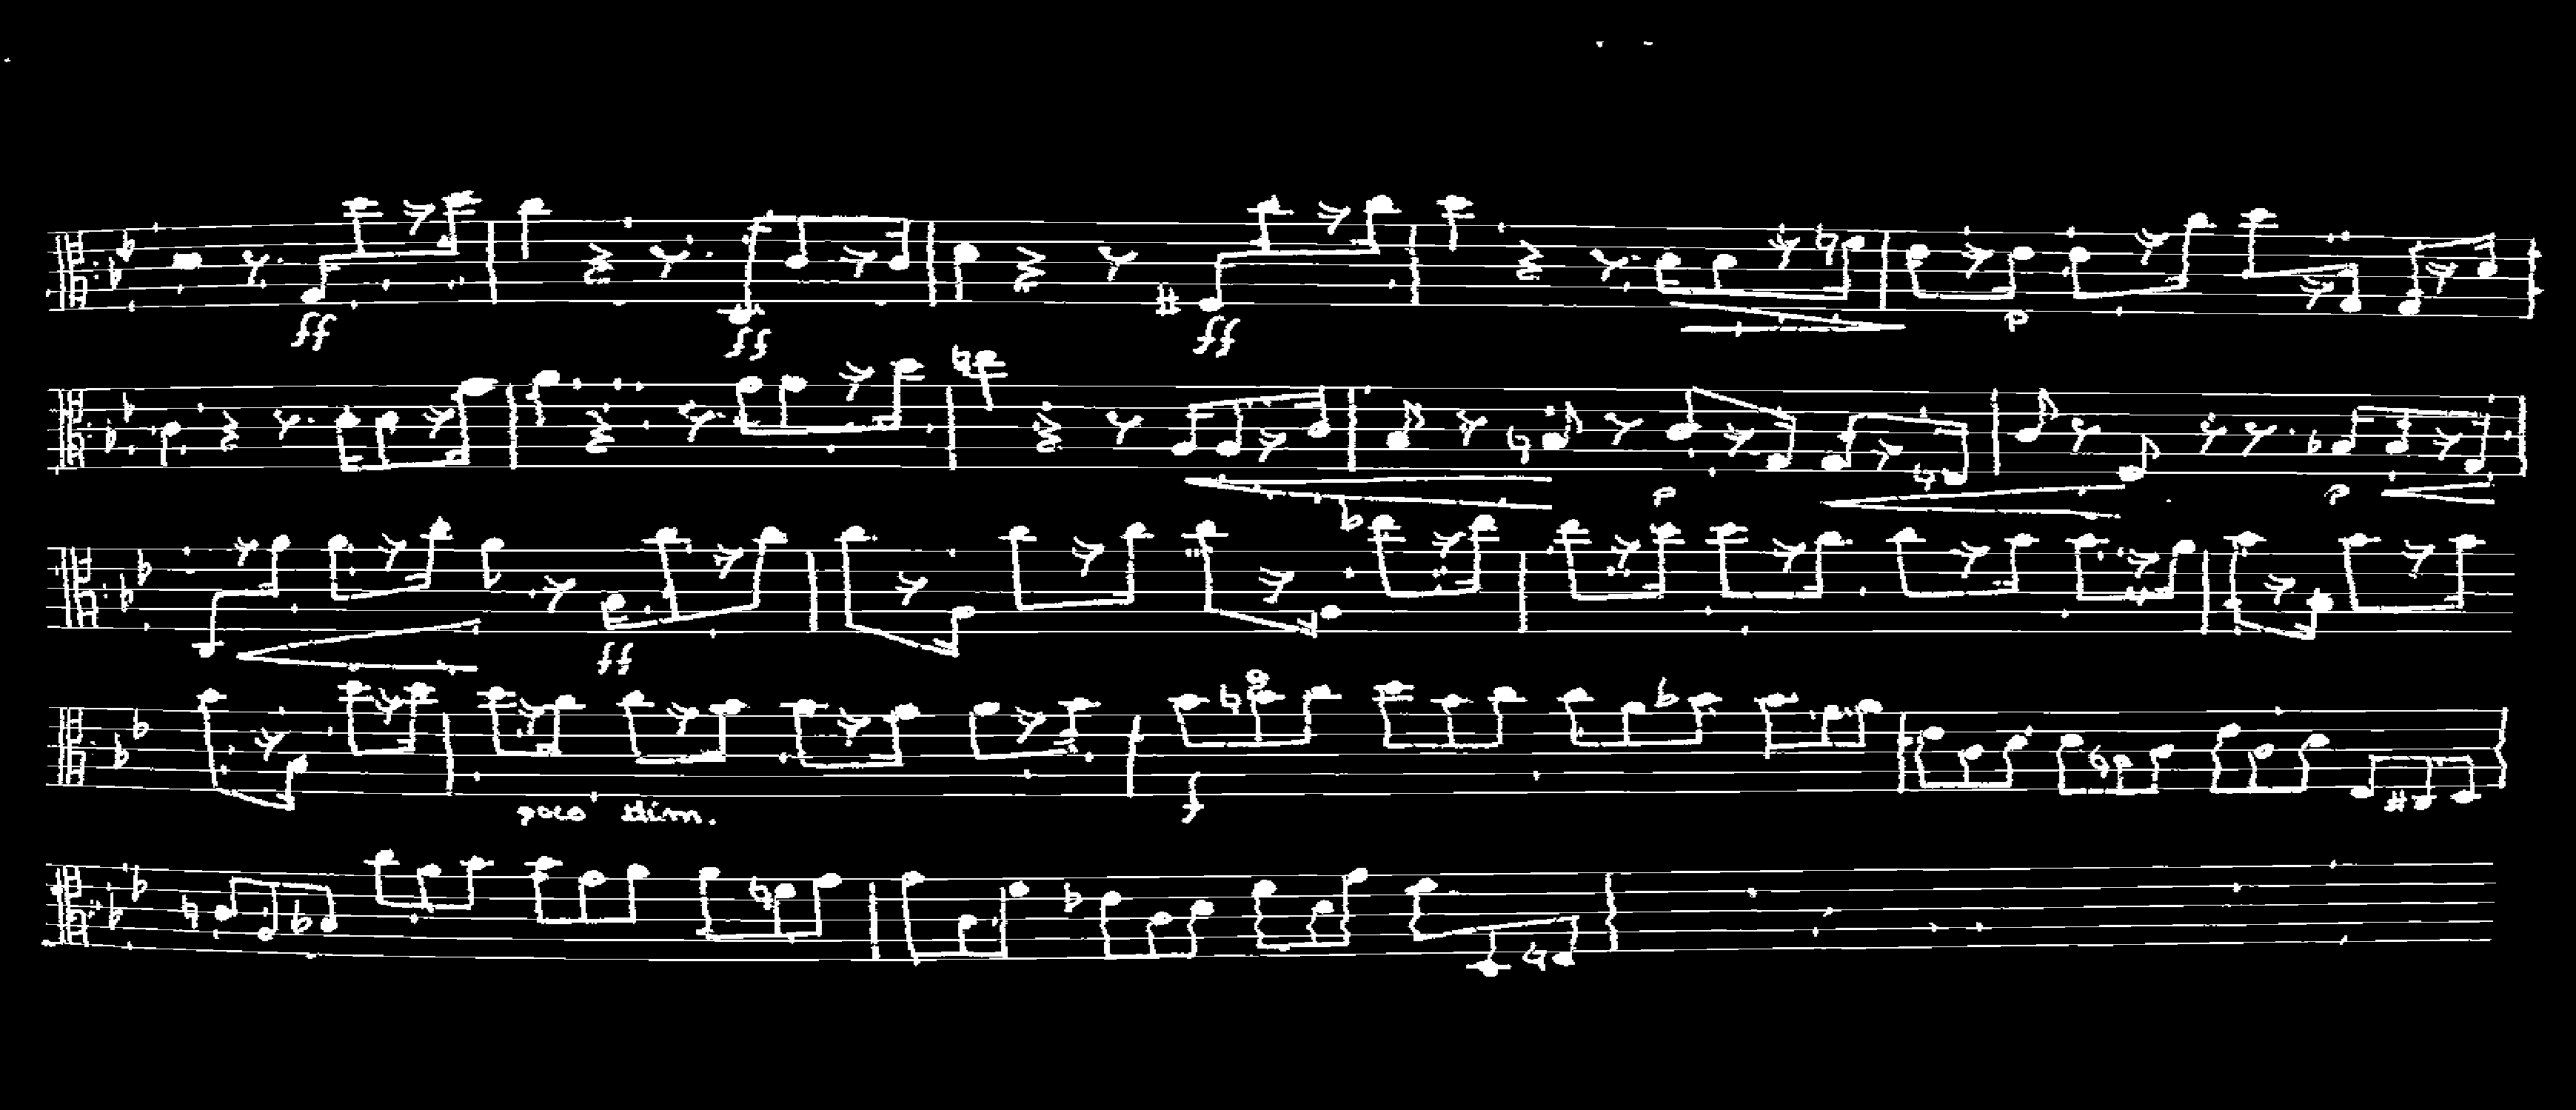 ff ff ff p
p p
ff
8
poco dim. f